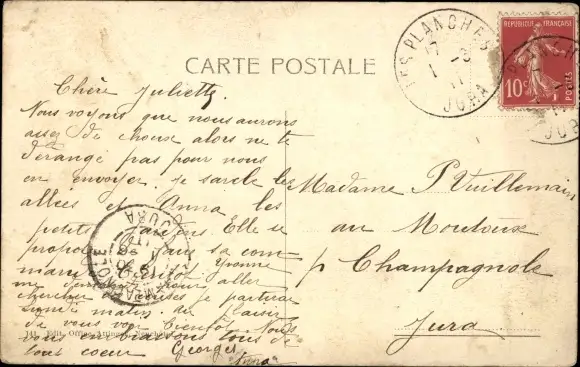 CARTE POSTALE
LES PLANCHES
17 -8
11
JURA
REPUBLIQUE FRANÇAISE
10c
POSTES
Chère Juliette
Nous voyons que nous aurons
assez de choux alors ne te
dérange pas pour nous
en envoyer. je sarcle les
allées et Anna les
petits Elle se
propose dans sa com
Yvonne
aller
chercher je
matin. Au plaisir
de vous voir bientôt Nous
vous embrassons tous de
tout coeur Georges
Anna
Madame P Vuillemain
au Moutoux
p Champagnole
Jura
JURA
141 Edit.